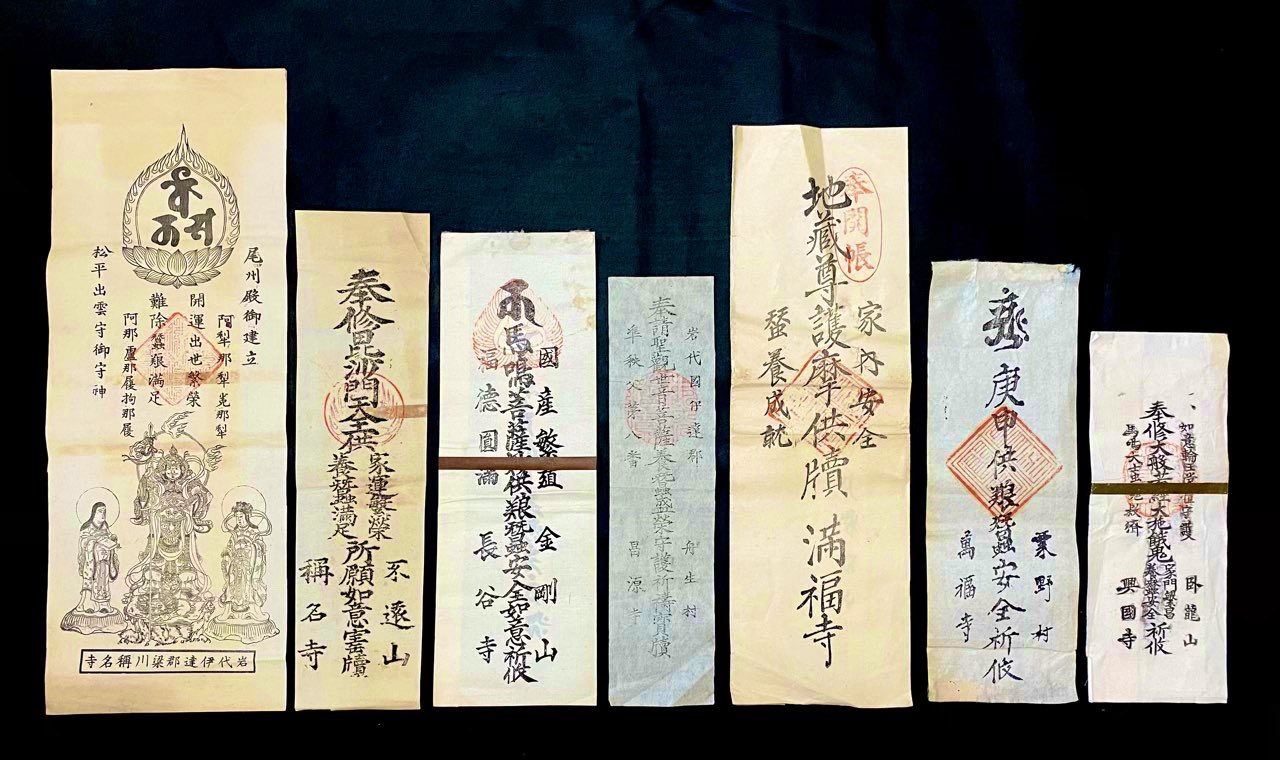 尾州殿御建立
阿梨那梨㝹那梨
開運出世繁榮
難除蠶飛満足
阿那盧那履拘那履
松平出雲守御守神
岩代伊達郡梁川稱名寺
奉修毘沙門天供
家運繁榮
養蠶満足
所願如意寳牘
不遠山
稱名寺
馬鳴菩薩供粮蚕安全如意祈攸
國産繁殖
福德圓滿
金剛山
長谷寺
岩代國伊達郡
舟生村
奉請聖觀世音菩薩養蚕盛榮守護祈祷寳牘
準秩父第八番
昌源寺
奉開帳
家内安全
地藏尊護摩供牘
蚕養成就
満福寺
庚申供粮蚕安全祈攸
粟野村
萬福寺
如意輪
奉修大般若經大施餓鬼
家門繁昌
養蠶安全
祈攸
臥龍山
興國寺